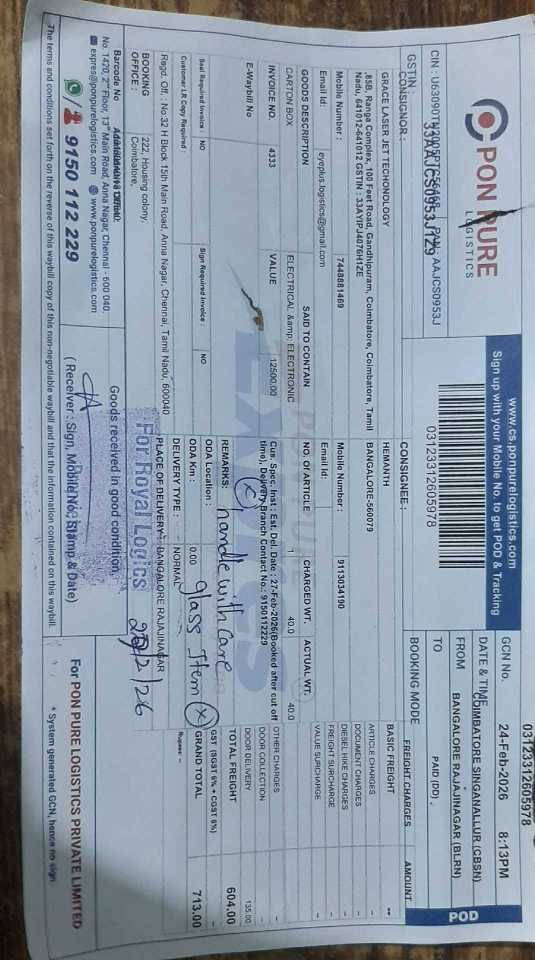 PON PURE
LOGISTICS
www.cs.ponpurelogistics.com
Sign up with your Mobile No. to get POD & Tracking
03123312605978
03123312605978
POD
CIN : U63090TN2005PTC56468 PAN : AAJCS0953J
GSTIN : 33AAJCS0953J1Z9
GCN No.
DATE & TIME 24-Feb-2026 8:13PM
FROM COIMBATORE SINGANALLUR (CBSN)
TO BANGALORE RAJAJINAGAR (BLRN)
BOOKING MODE PAID (DD) .
CONSIGNOR :
GRACE LASER JET TECHONOLOGY
,85B, Ranga Complex, 100 Feet Road, Gandhipuram, Coimbatore, Coimbatore, Tamil
Nadu, 641012-641012 GSTIN : 33AYIPJ4076H1ZE
Mobile Number : 7448881469
Email Id: eyeplus.logistics@gmail.com
CONSIGNEE :
HEMANTH
BANGALORE-560079
Mobile Number : 9113034190
Email Id:
FREIGHT CHARGES AMOUNT
BASIC FREIGHT --
ARTICLE CHARGES –
DOCUMENT CHARGES –
DIESEL HIKE CHARGES –
FREIGHT SURCHARGE –
VALUE SURCHARGE –
OTHER CHARGES –
DOOR COLLECTION –
DOOR DELIVERY 135.00
TOTAL FREIGHT 604.00
GST (SGST 9% + CGST 9%)
GRAND TOTAL 713.00
Rupees –
GOODS DESCRIPTION SAID TO CONTAIN NO. OF ARTICLE CHARGED WT. ACTUAL WT.
CARTON BOX ELECTRICAL &amp; ELECTRONIC 1 40.0 40.0
INVOICE NO. 4333 VALUE 12500.00
E-Waybill No
Cus. Spec. Inst : Est. Del. Date : 27-Feb-2026(Booked after cut off
time), Delivery Branch Contact No.: 9150112229
REMARKS:
handle with care
glass Item
Seal Required Invoice : NO Sign Required Invoice : NO
Customer LR Copy Required :
ODA Location :
ODA Km : 0.00
DELIVERY TYPE : NORMAL
PLACE OF DELIVERY : BANGALORE RAJAJINAGAR
Regd. Off. : No.32 H Block 15th Main Road, Anna Nagar, Chennai, Tamil Nadu, 600040
BOOKING OFFICE : 222, Housing colony,
Coimbatore,
For Royal Logics
Goods received in good condition.
( Receiver : Sign, Mobile No., Stamp & Date)
Barcode No
No. 1470, 2nd Floor, 13th Main Road, Anna Nagar, Chennai - 600 040.
expres@ponpurelogistics.com www.ponpurelogistics.com
9150 112 229
For PON PURE LOGISTICS PRIVATE LIMITED
* System generated GCN, hence no sign
The terms and conditions set forth on the reverse of this waybill copy of this non-negotiable waybill and that the information contained on this waybill.